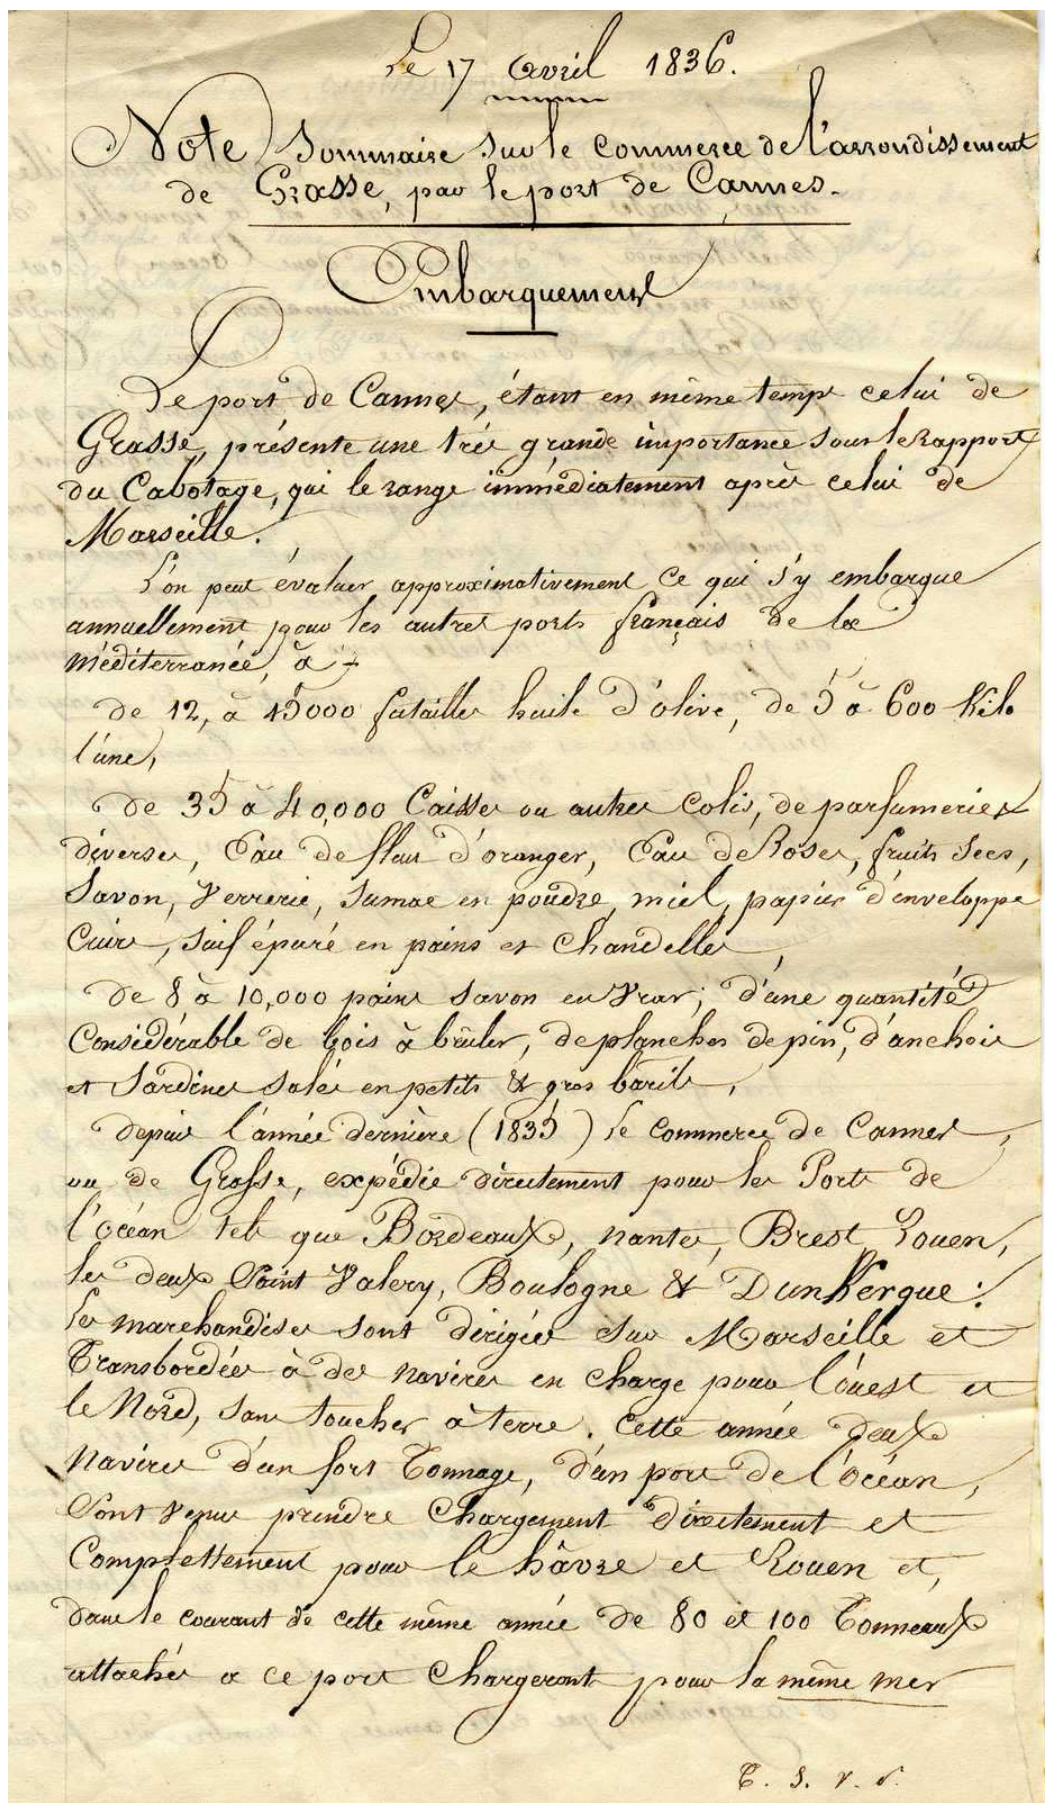 Le 17 avril 1836.
Note Sommaire sur le commerce de l'arrondissement
de Grasse, par le port de Cannes.
Embarquement
Le port de Cannes, étant en même temps celui de
Grasse, présente une très grande importance sous le Rapport
du Cabotage, qui le range immédiatement après celui de
Marseille.
L'on peut évaluer approximativement ce qui s'y embarque
annuellement pour les autres ports français de la
méditerranée, à
de 12, à 15000 futailles huile d'olive, de 5 à 600 Kilo
l'une,
de 35 à 40,000 Caisses ou autres Colis, de parfumeries
diverses, Eau de fleur d'oranger, Eau de Roses, fruits secs,
Savon, Verrerie, sumac en poudre, miel, papier d'enveloppe
Cuirs, suif épuré en pains et Chandelles,
de 8 à 10,000 pains savon en Vrac; d'une quantité
Considérable de bois à brûler, de planches de pin, d'anchois
et Sardines salés en petits & gros barils,
depuis l'année dernière (1835) le commerce de Cannes,
ou de Grasse, expédie directement pour les Ports de
l'océan tels que Bordeaux, nantes, Brest Rouen,
les deux Saint Valery, Boulogne & DunKerque:
Les marchandises sont dirigées sur Marseille et
Transbordées à des navires en charge pour l'ouest et
le Nord, sans toucher à terre. Cette année deux
Navires d'un fort Tonnage, d'un port de l'océan,
Sont Venus prendre Chargement directement et
Complettement pour le hâvre et Rouen et,
dans le courant de cette même année de 80 et 100 Tonneaux
attachés à ce port Chargeront pour la même mer
T. S. V. P.